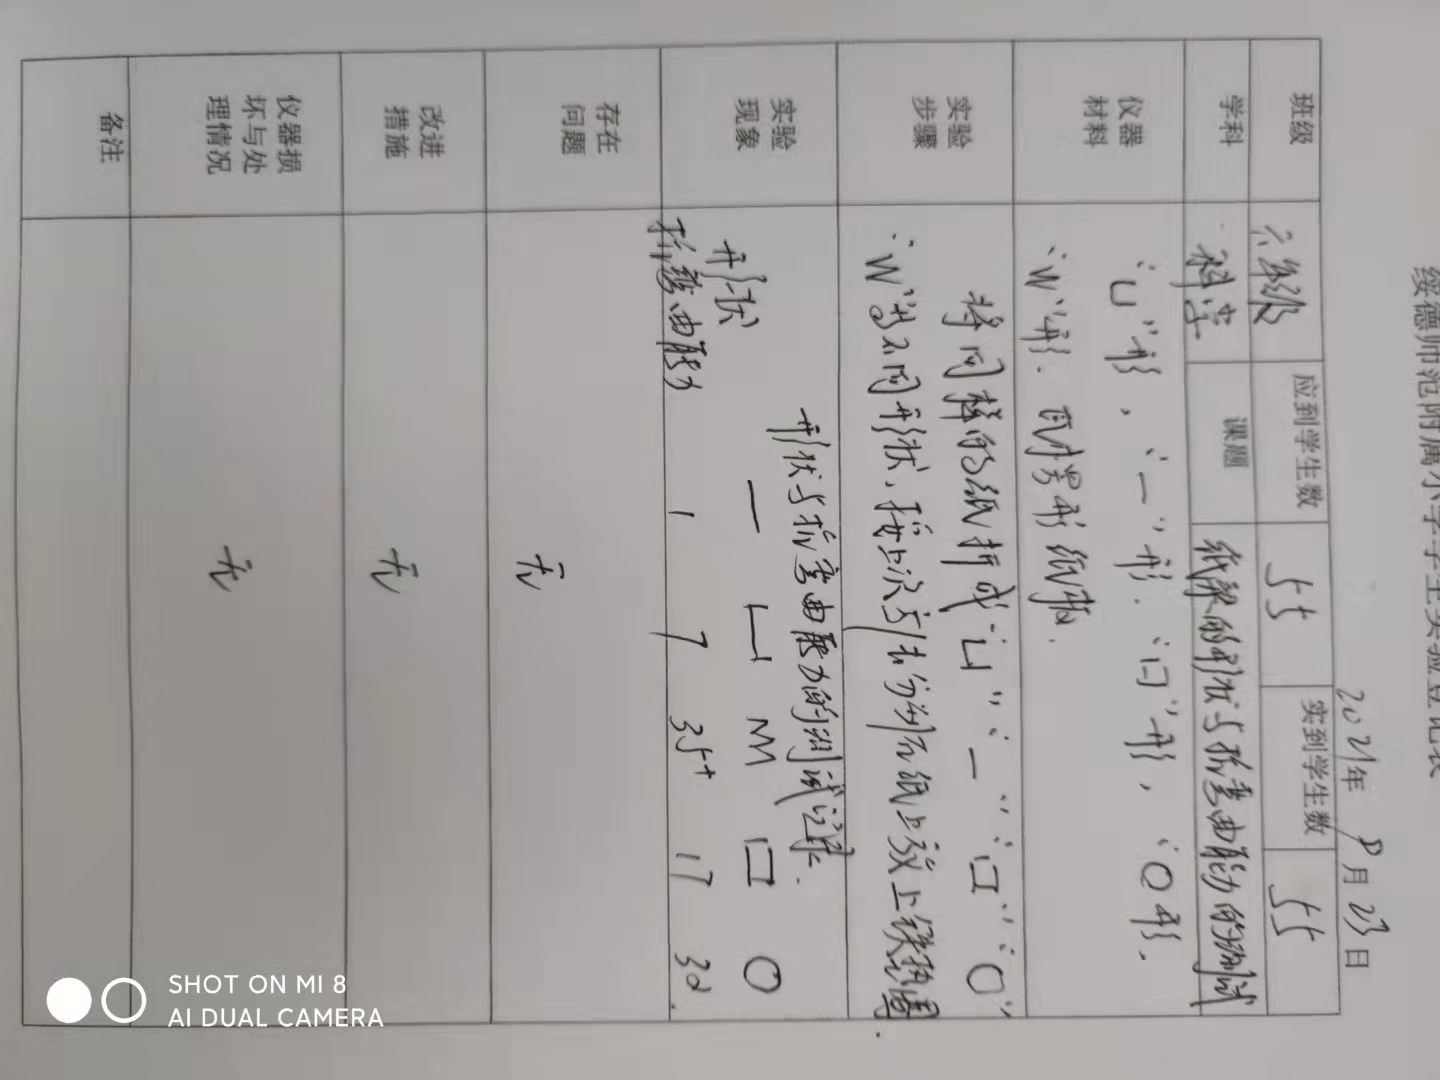 绥德师范附属小学学生实验登记表
2021年 8月23日
班级 六年级 应到学生数 55 实到学生数 55
学科 科学 课题 纸梁的形状与抗弯曲能力的测试
仪器
材料
“凵”形，“一”形．“口”形，“O形．
“W”形．瓦楞形纸张．
实验
步骤
将同样的纸折成“凵”“一”“口”“O”
“W”等不同形状，按上次方法分别在纸上放上铁垫圈．
实验
现象
形状与抗弯曲能力的测试记录．
形状 一 凵 M 口 O
抗弯曲能力 1 7 35+ 17 30
存在
问题
无
改进
措施
无
仪器损
坏与处
理情况
无
备注
SHOT ON MI 8
AI DUAL CAMERA